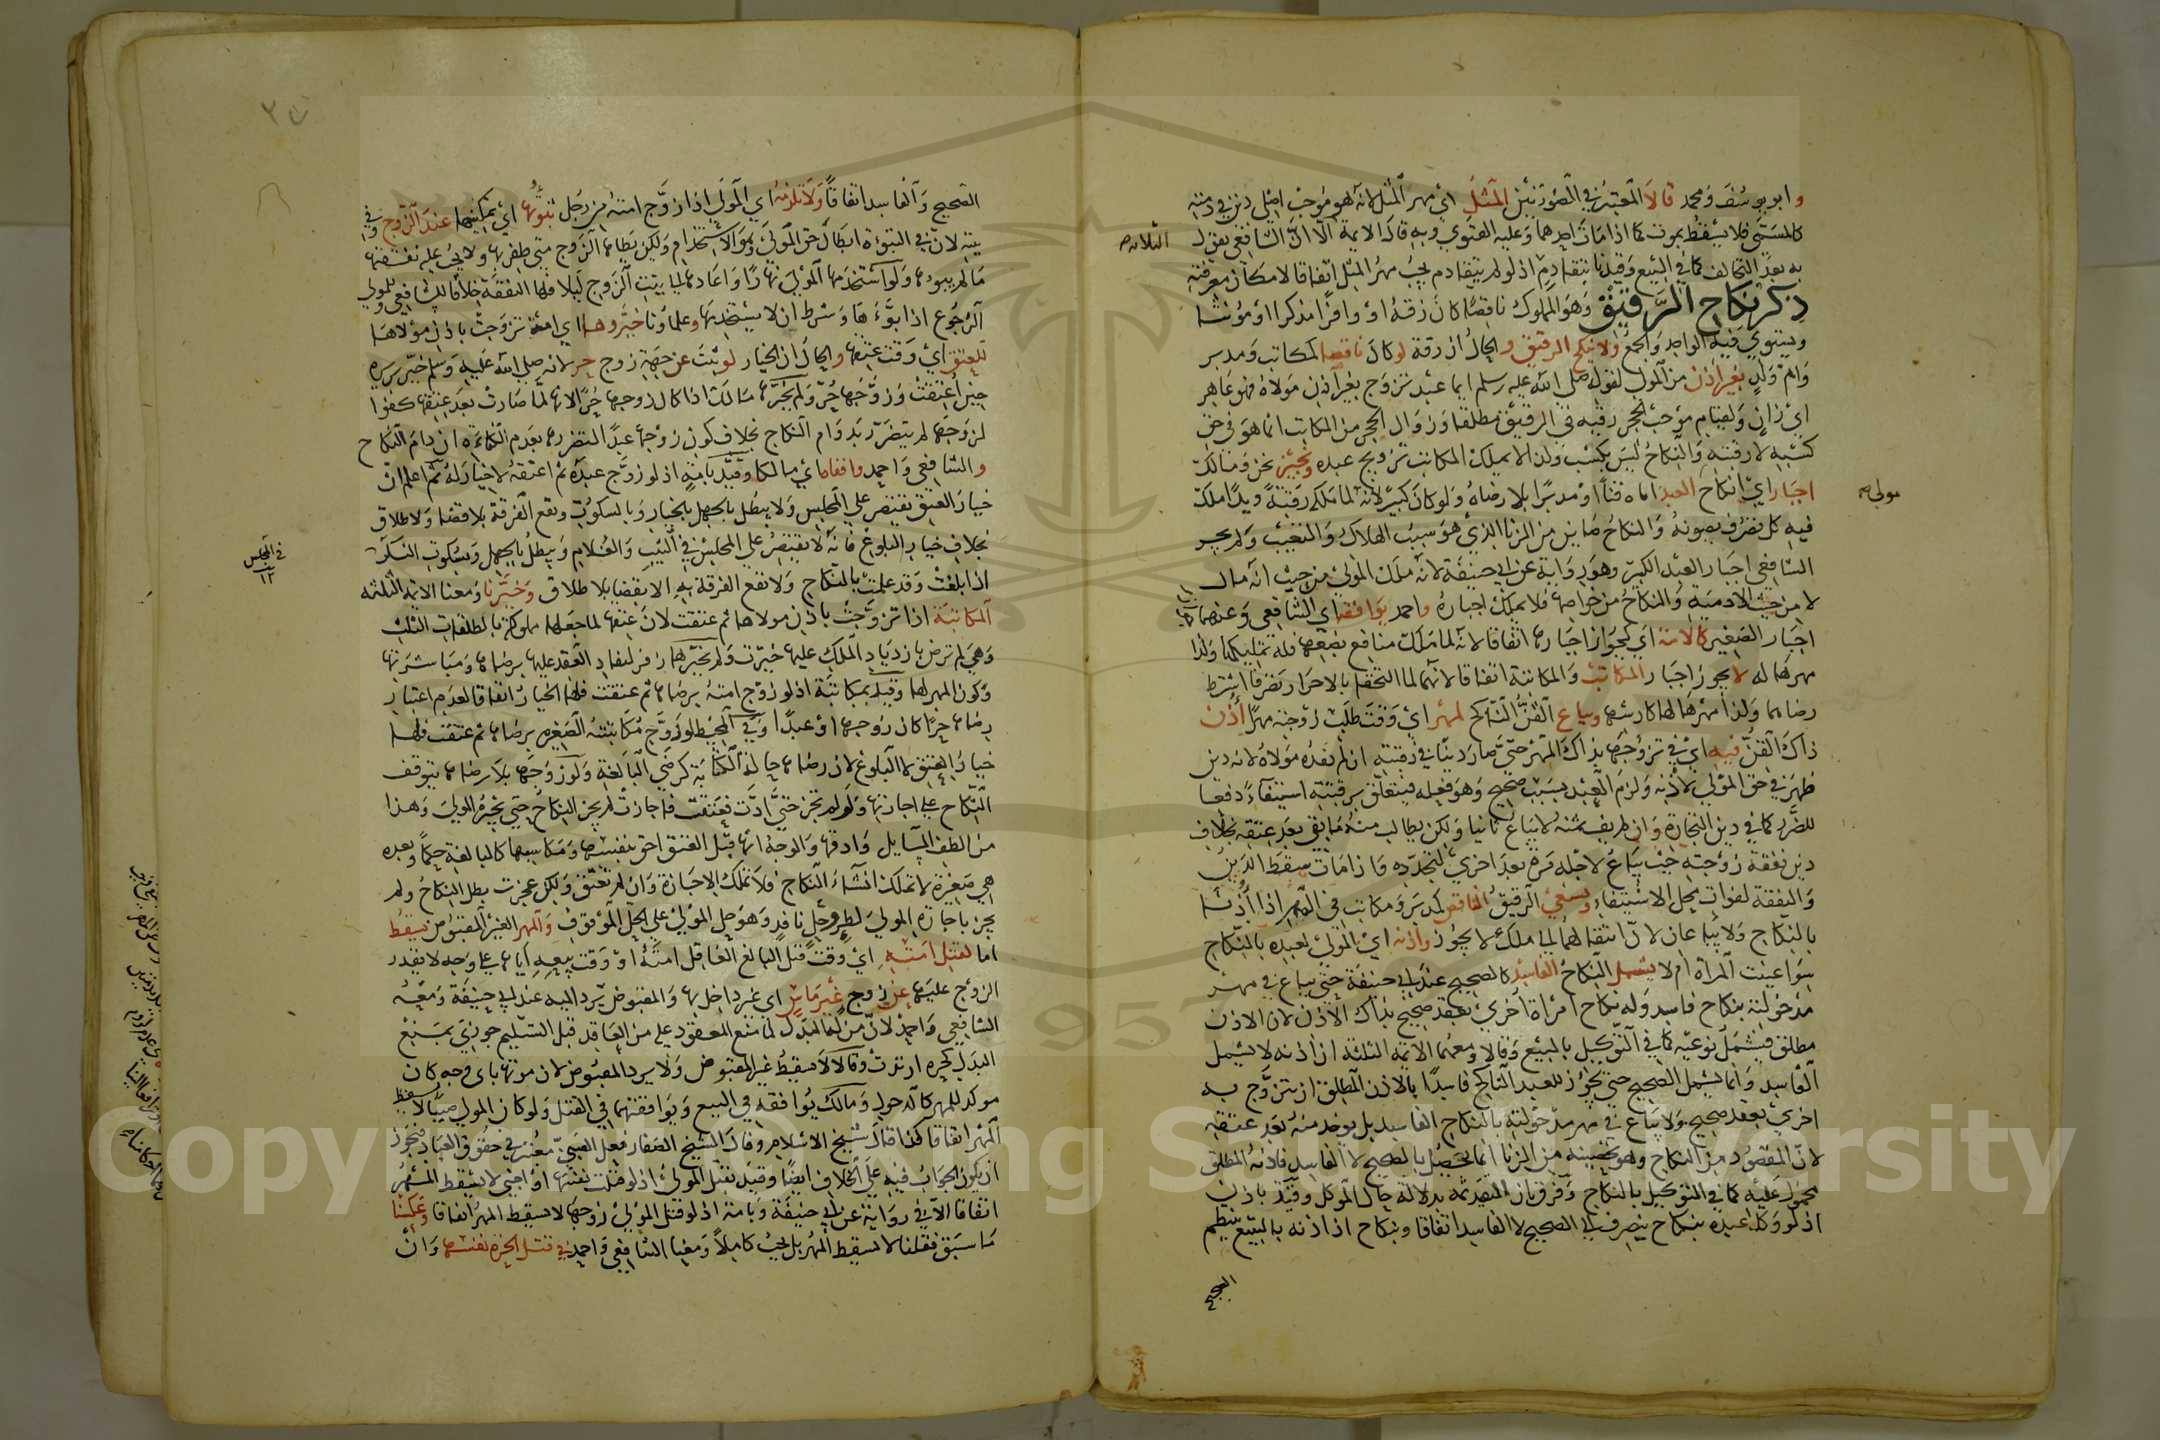 وابو يوسف ومحمد قالا المعتبر في الصورتين المثل اي مهر المثل لانه هو موجب اصلي دين في ذمته
كالمسمى فلا يسقط بموت كما اذا مات احدهما وعليه الفتوى وبه قال الايمة الا ان الشافعي يقول
الثلاثة
به بعد التحالف كما في البيع وقيدنا بتقادم اذ لو لم يتقادم يجب مهر المثل اتفاقا لامكان معرفته
ذكر نكاح الرقيق وهو المملوك ناقصا كان رقه او وافرا مذكرا او مؤنثا
ويستوي فيه الواحد والجمع ولا ينكح الرقيق والحال ان رقه لو كان ناقصا لمكاتب ومدبر
وام ولد بغير اذن من المولى لقوله صلى الله عليه وسلم ايما عبد تزوج بغير اذن مولاه فهو عاهر
اي زان ولقيام موجب الحجر رقيه في الرقيق مطلقا وزوال الحجر من المكاتب انما هو في حق
كسبه لا رقبته والنكاح ليس بكسب ولذا لا يملك المكاتب تزويج عبده ونجيز نحن ومالك
اجبار اي انكاح العبد اياه قنا او مدبرا بلا رضاه ولو كان كبيرا لانه لما ملكه رقبة ويدا ملك
مولى
فيه كل تصرف يصونه والنكاح صاين من الزنا الذي هو سبب الهلاك والتعييب ولم يجز
الشافعي اجبار العبد الكبير وهو رواية عن ابي حنيفة لانه ملك المولى من حيث انه مال
لا من حيث الادمية والنكاح من خواصها فلا يملك اجباره واحمد يوافقه اي الشافعي وعنهما
اجبار الصغير كالامة اي كجواز اجبارها اتفاقا لانه لما ملك منافع بضعها فله تمليكها ولذا
مهرها له لا يجوز اجبار المكاتب والمكاتبة اتفاقا لانهما لما التحقا بالاحرار تصرفا اشترط
رضاهما ولذا مهرها لها كارشها ويباع القن الناكح لمهر اي وقت طلب زوجته مهرا اذن
ذاك القن فيه اي في تزوجها بذاك المهر حتى صار دينا في رقبته ان لم يفده مولاه لانه دين
ظهر في حق المولى لاذنه ولزم العبد بسبب صحيح وهو فعله فيتعلق برقبته استيفاء دفعا
للضرر كما في دين التجارة وان لم يف ثمنه لا يباع ثانيا ولكن يطالب منه ما بقي بعد عتقه بخلاف
دين نفقة زوجته حيث يباع لاجله مرة بعد اخرى لتجدده واذا مات سقط الدين
والنفقة لفوات محل الاستيفاء ويسعى الرقيق الناقص كمدبر ومكاتب في المهر اذا اذنا
بالنكاح ولا يباعان لان انتقالهما الى ملك لا يجوز واذنه اي المولى لعبده بالنكاح
سوا عينت المراة ام لا يشمل النكاح الفاسد كالصحيح عند ابي حنيفة حتى يباع في مهر
مدخولته بنكاح فاسد وله نكاح امراة اخرى بعقد صحيح بذاك الاذن لان الاذن
مطلق فيشمل نوعيه كما في التوكيل بالبيع وقالا ومعهما الايمة الثلثة ان اذنه لا يشمل
الفاسد وانما يشمل الصحيح حتى يجوز للعبد الناكح فاسدا بالاذن المطلق ان يتزوج به
اخرى بعقد صحيح ولا يباع في مهر مدخولته بالنكاح الفاسد بل يوخذ منه بعد عتقه
لان المقصود من النكاح وهو تحصينه من الزنا انما يحصل بالصحيح لا الفاسد فاذنه المطلق
محمول عليه كما في التوكيل بالنكاح وفرق بان التقييد ثمه بدلالة حال الموكل وقيد باذن
اذ لو وكل عبده بنكاح ينصرف الى الصحيح لا الفاسد اتفاقا وبنكاح اذ اذنه بالبيع ينظم
الصحيح
الصحيح والفاسد اتفاقا ولا تلزمه اي المولى اذا زوج امته من رجل تبوئتها اي تمكينها عند الزوج في
بيته لان في التبوئة ابطال حق المولى وهو الاستخدام ولكن يطاها الزوج متى ظفر بها ولا يجب عليه نفقتها
ما لم يبوءها ولو استخدمها المولى نهارا واعادها الى بيت الزوج ليلا فلها النفقة خلافا للشافعي وللمولى
الرجوع اذا بوءها وشرط ان لا يستخدمها وعلماؤنا خيروها اي امة تزوجت باذن مولاها
للعتق اي وقت عتقها والحال ان الخيار لو يثبت عن جهة زوج حر لانه صلى الله عليه وسلم خير بريرة
حين اعتقت وزوجها حر ولم يخيرها مالك اذا كان زوجها حرا لانها لما صارت بعد عتقها كفوا
لزوجها لم يتضرر بدوام النكاح بخلاف كون زوجها عبدا لتضررها بعدم الكفاءة ان دام النكاح
والشافعي واحمد وافقاه اي مالكا وقيد بامته اذ لو زوج عبده ثم اعتقه لا خيار له ثم اعلم ان
خيار العتق يقتصر على المجلس ولا يبطل بالجهل بالخيار وبالسكوت وتقع الفرقة بلا قضا ولا طلاق
بخلاف خيار البلوغ فانه لا يقتصر على المجلس في الثيب والغلام ويبطل بالجهل وبسكوت البكر
في المجلس
١٢
اذا بلغت وقد علمت بالنكاح ولا تقع الفرقة به الا بقضا بلا طلاق وخيرنا ومعنا الايمة الثلثة
المكاتبة اذا تزوجت باذن مولاها ثم عتقت لان عتقها لما جعلها مملوكة بالطلقات الثلث
وهي لم ترض بازدياد الملك عليها خيرت ولم يخيرها زفر لنفاد العقد عليها برضاها ومباشرتها
وكون المهر لها وقيد بمكاتبة اذ لو زوج امته برضاها ثم عتقت فلها الخيار اتفاقا لعدم اعتبار
رضاها حرا كان زوجها او عبدا وفي المحيط لو زوج مكاتبته الصغيرة برضاها ثم عتقت فلها
خيار العتق لا البلوغ لان رضاها حالة الكتابة كرضى البالغة ولو زوجها بلا رضاها يتوقف
النكاح على اجازتها ولو لم تجز حتى ادت فعتقت فاجازت لم يجز النكاح حتى يجيزه المولى وهذا
من الطف المسايل وادقها والوجه انها قبل العتق احق بنفسها ومكاسبها كالبالغة حكما وبعده
هي صغيرة لا تملك انشاء النكاح فلا تملك الاجازة وان لم تعتق ولكن عجزت بطل النكاح ولم
يجز باجازة المولى لطرو حل نافد وهو حل المولى على الحل الموقوف والمهر الغير المقبوض يسقط
اما لقتل امته اي وقت قتل البالغ العاقل امته او وقت بيعه اياها على وجه لا يقدر
الزوج عليها عن زوج غير ماس اي غير داخل بها والمقبوض يرد اليه عند ابي حنيفة ومعه
الشافعي واحمد لان من له البدل لما منع المعقود عليه من العاقد قبل التسليم جوزي بمنع
البدل كحرة ارتدت وقالا لا يسقط غير المقبوض ولا يرد المقبوض لان موتها باي وجه كان
موكد للمهر كالدخول ومالك يوافقه في البيع ويوافقهما في القتل ولو كان المولى صبيا لا يسقط
المهر اتفاقا كذا قال شيخ الاسلام وقال الشيخ الصفار فعل الصبي معتبر في حقوق العباد فيجوز
ان يكون الجواب فيه على الخلاف ايضا وقيد بقتل المولى اذ لو قتلت نفسها او اجنبي لا يسقط المهر
اتفاقا الا في رواية عن ابي حنيفة وبامته اذ لو قتل المولى زوجها لا يسقط المهر اتفاقا وعكسنا
ما سبق فقلنا لا يسقط المهر بل يجب كاملا ومعنا الشافعي واحمد في قتل الحرة نفسها وان